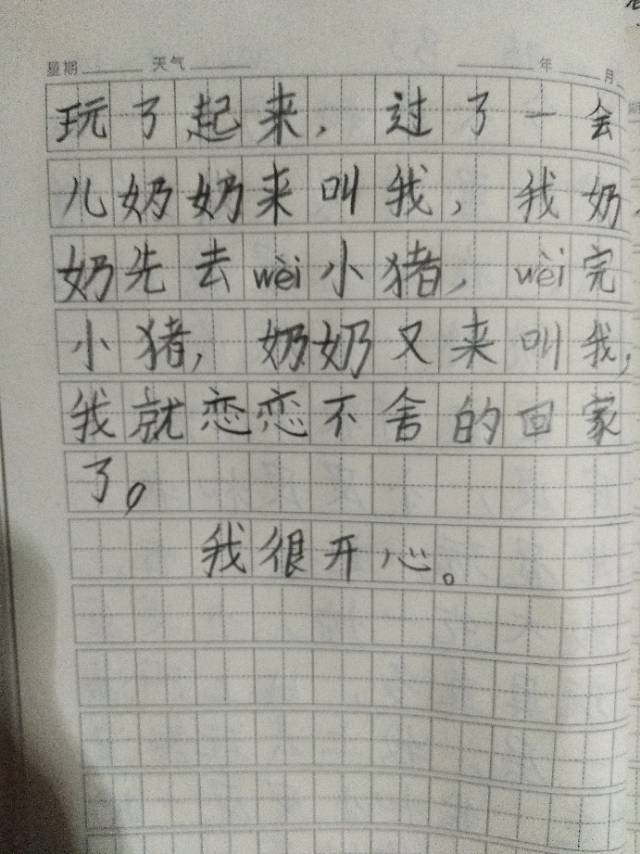 星期 天气 年 月
玩了起来，过了一会
儿奶奶来叫我，我奶
奶先去wèi小猪，wèi完
小猪，奶奶又来叫我，
我就恋恋不舍的回家
了。
我很开心。